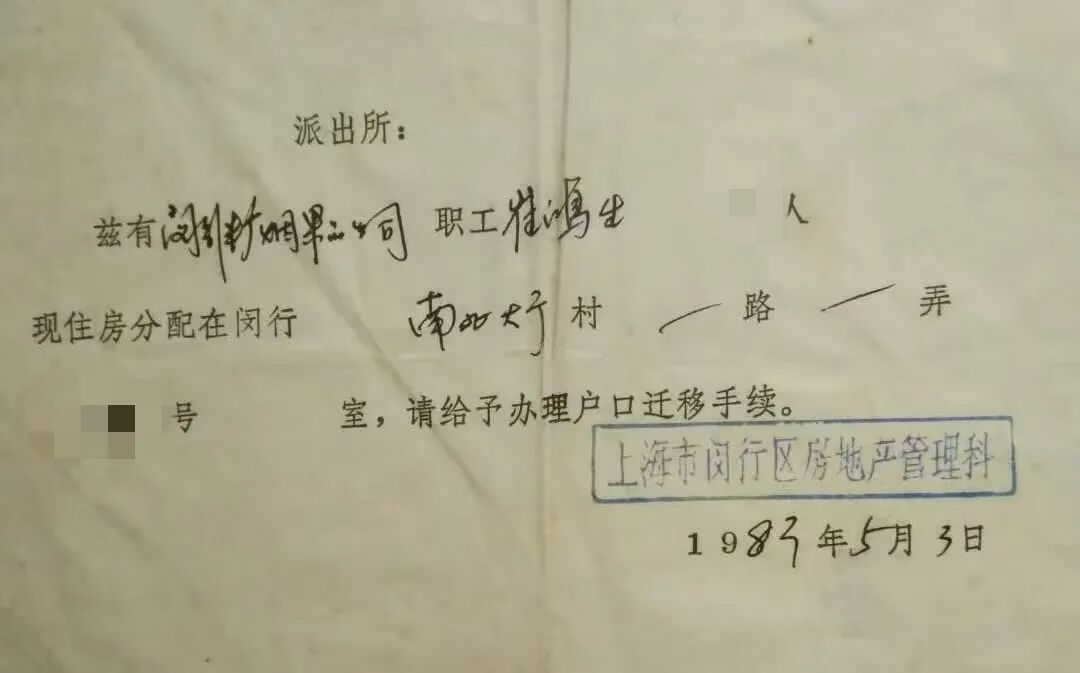 派出所：
兹有闵 糖烟果品公司 职工崔鸿生 人
现住房分配在闵行 南北大 村 — 路 — 弄
号 室，请给予办理户口迁移手续。
上海市闵行区房地产管理科
198 年5月3日